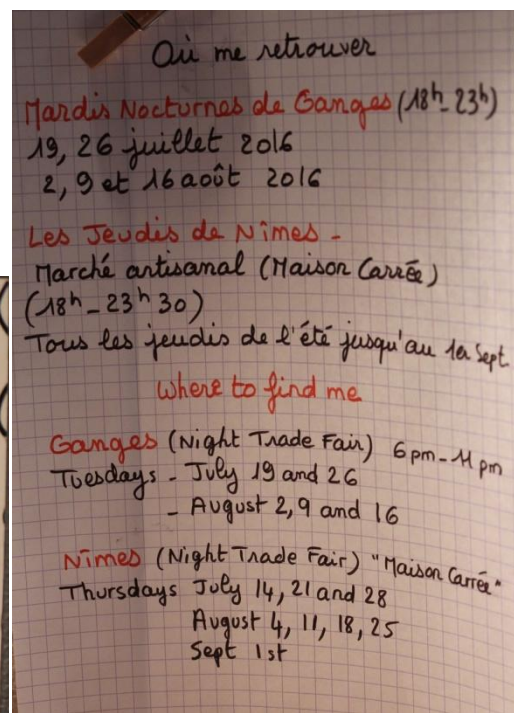 Où me retrouver
Mardis Nocturnes de Ganges (18h-23h)
19, 26 juillet 2016
2, 9 et 16 août 2016
Les Jeudis de Nîmes -
Marché artisanal (Maison Carrée)
(18h - 23h30)
Tous les jeudis de l'été jusqu'au 1er Sept
Where to find me
Ganges (Night Trade Fair) 6pm-11pm
Tuesdays - July 19 and 26
- August 2, 9 and 16
Nîmes (Night Trade Fair) "Maison Carrée"
Thursdays July 14, 21 and 28
August 4, 11, 18, 25
Sept 1st